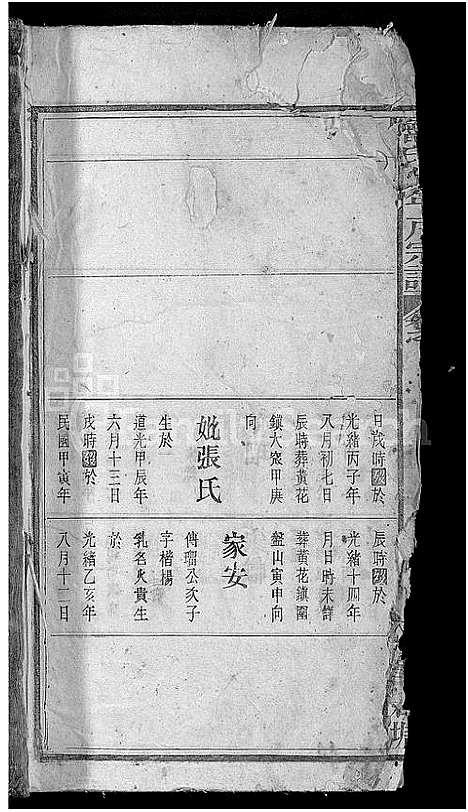 日戌時歿於
光緒丙子年
八月初七日
辰時葬黃花
鎮大窊甲庚
向
妣張氏
生於
道光甲辰年
六月十三日
戌時歿於
民國甲寅年
辰時歿於
光緒十四年
月日時未詳
葬黃花鎮圍
盤山寅申向
家安
傅瑠公次子
字楷楊
乳名火貴生
於
光緒乙亥年
八月十二日
宗譜